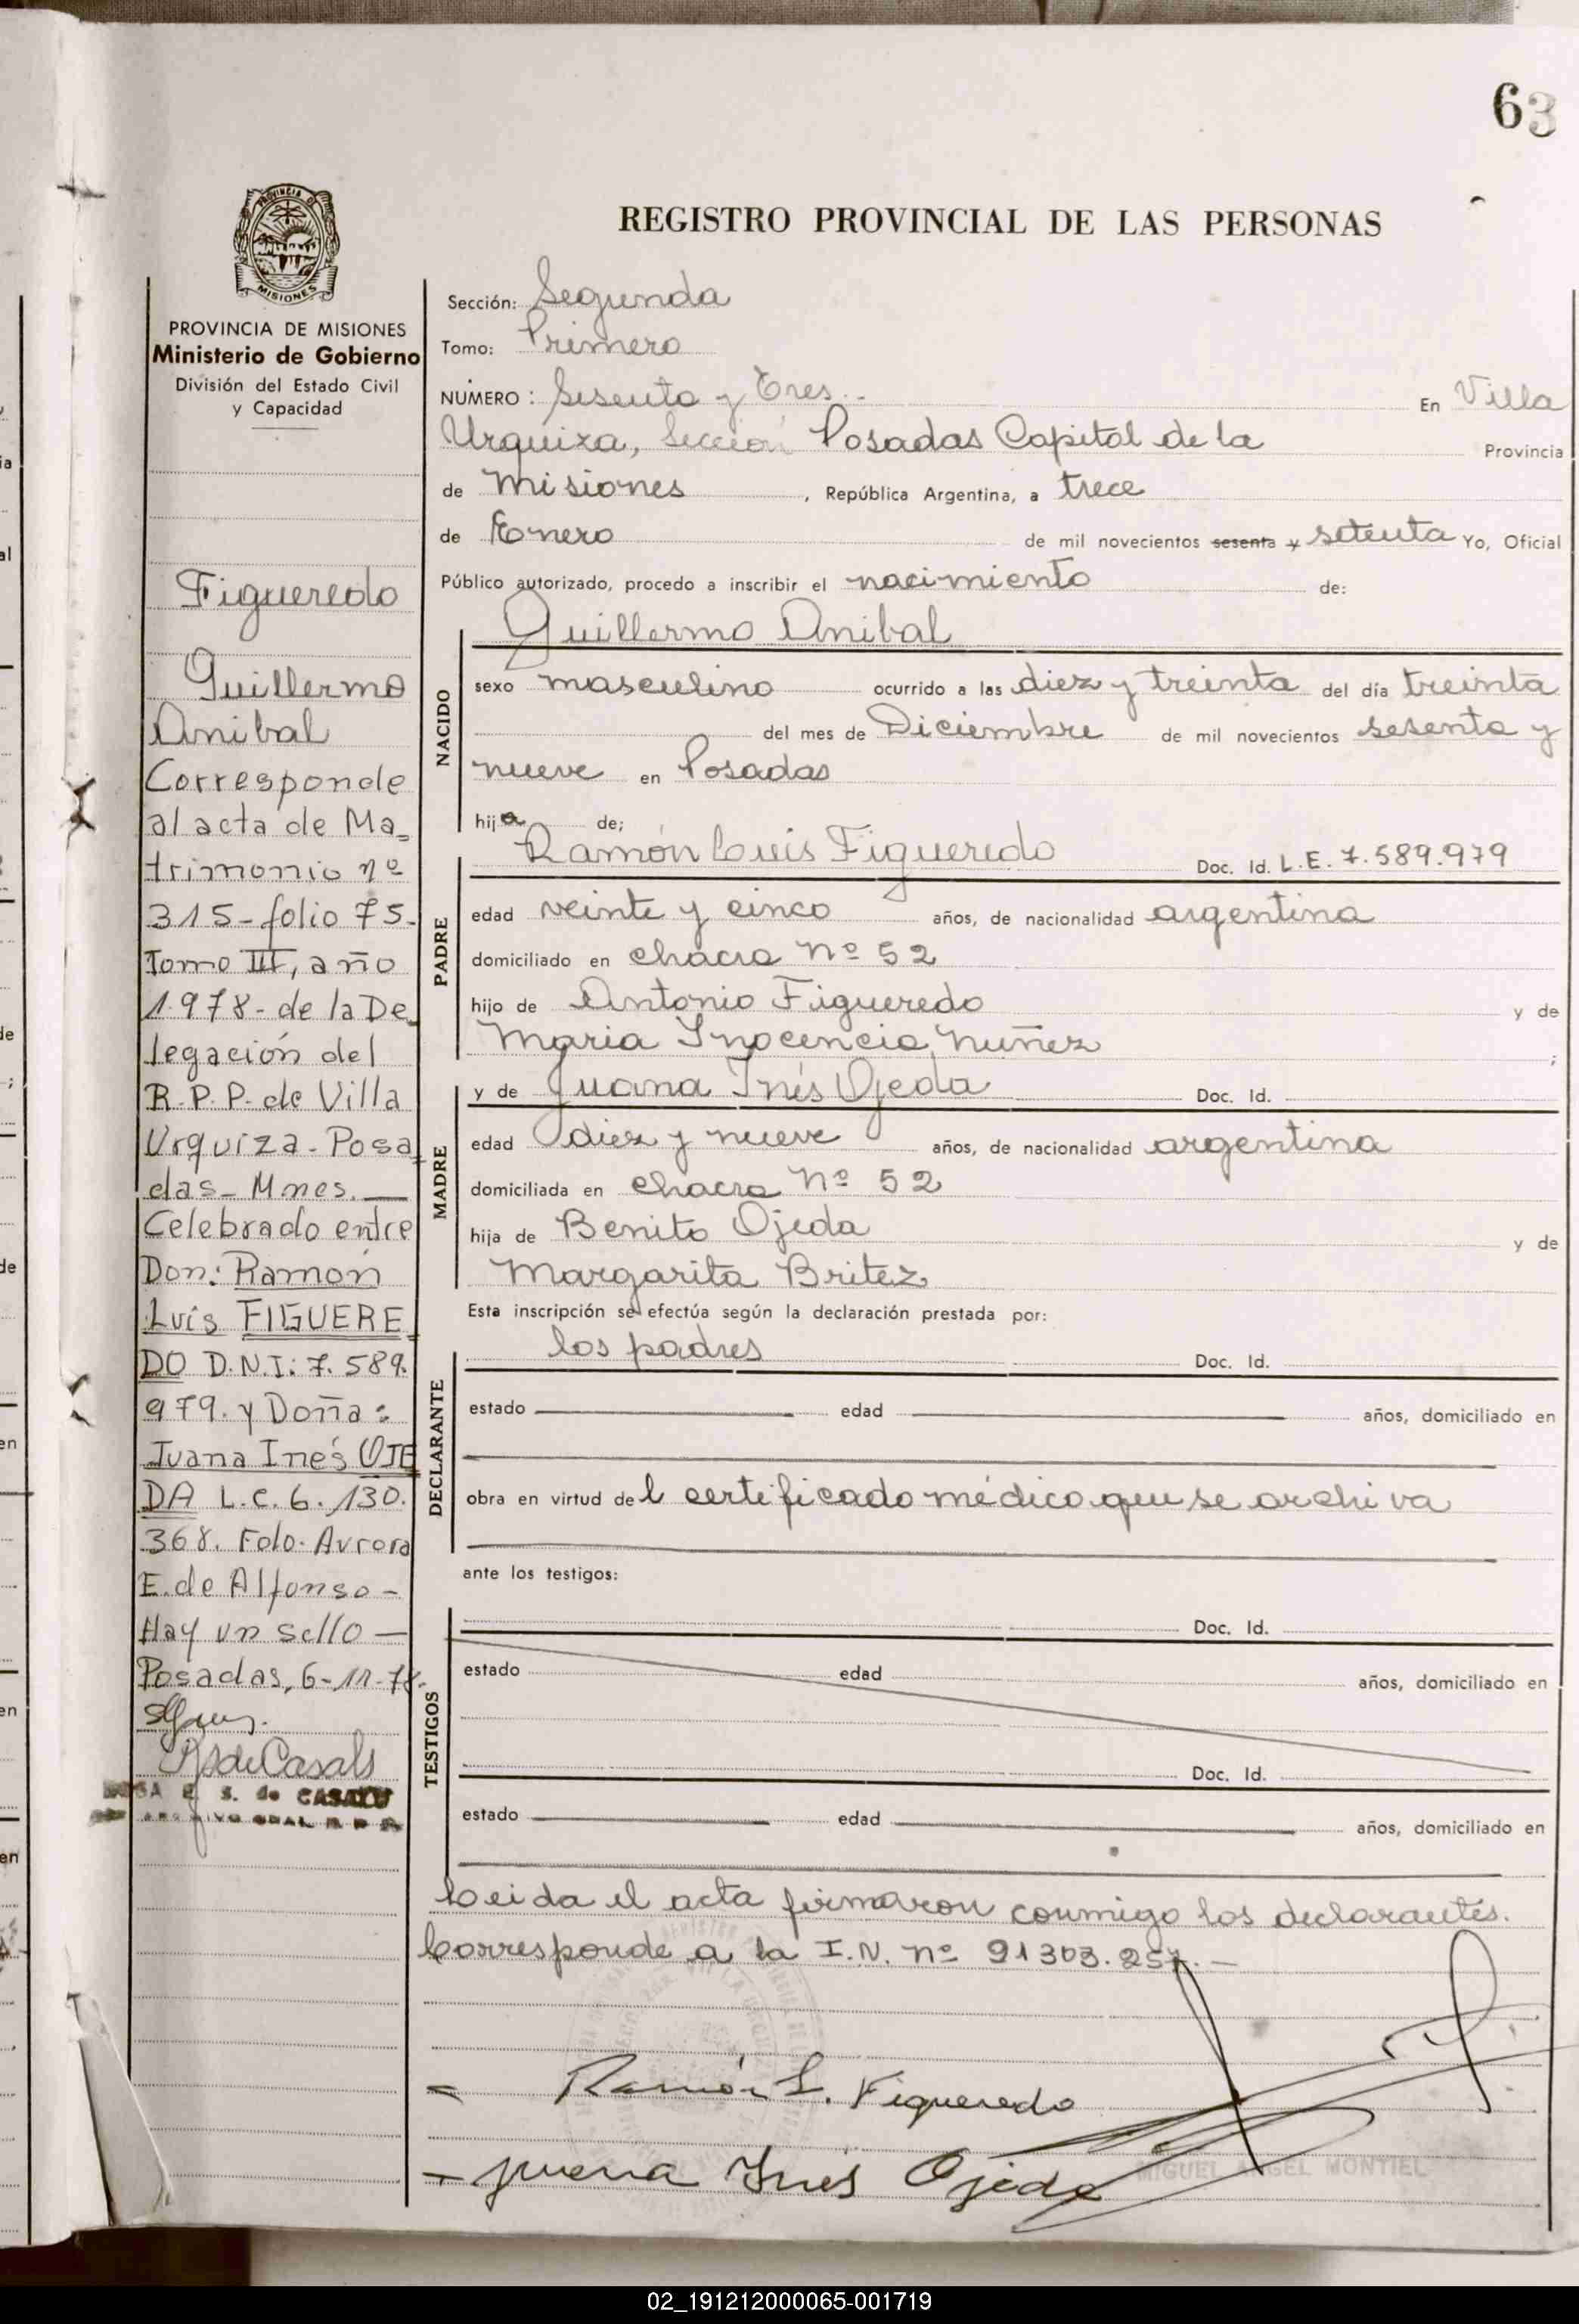 63
PROVINCIA DE
MISIONES
PROVINCIA DE MISIONES
Ministerio de Gobierno
División del Estado Civil
y Capacidad
Figueredo
Guillermo
Anibal
Corresponde
al acta de Ma=
trimonio nº
315-folio 75.
Tomo III, año
1.978- de la De
legación del
R.P.P. de Villa
Urquiza-Posa
das- Mnes.
Celebrado entre
Don: Ramón
Luís FIGUERE
DO D.N.I: 7.589.
979. y Doña:
Juana Inés OJE
DA L.C. 6.130.
368. Fdo. Aurora
E. de Alfonso-
Hay un sello
Posadas, 6-11-78.
de Casals
E. S. de CASALS
REGISTRO PROVINCIAL DE LAS PERSONAS
Sección: Segunda
Tomo: Primero
NÚMERO: Sesenta y Tres.. En Villa
Urquiza, Sección Posadas Capital de la Provincia
de Misiones, República Argentina, a trece
de Enero de mil novecientos sesenta y setenta Yo, Oficial
Público autorizado, procedo a inscribir el nacimiento de:
NACIDO
Guillermo Anibal
sexo masculino ocurrido a las diez y treinta del día treinta
del mes de Diciembre de mil novecientos sesenta y
nueve en Posadas
hijo de;
PADRE
Ramón Luis Figueredo Doc. Id. L.E. 7.589.979
edad veinte y cinco años, de nacionalidad argentina
domiciliado en chacra Nº 52
hijo de Antonio Figueredo y de
Maria Inocencia Nuñez ;
MADRE
y de Juana Inés Ojeda Doc. Id.
edad diez y nueve años, de nacionalidad argentina
domiciliada en chacra Nº 52
hija de Benito Ojeda y de
Margarita Britez
Esta inscripción se efectúa según la declaración prestada por:
DECLARANTE
los padres Doc. Id.
estado edad años, domiciliado en
obra en virtud del certificado médico que se archiva
ante los testigos:
TESTIGOS
Doc. Id.
estado edad años, domiciliado en
Doc. Id.
estado edad años, domiciliado en
Leida el acta firmaron conmigo los declarantes.
Corresponde a la I.N. nº 91303.257.-
Ramón L. Figueredo
Juana Inés Ojeda
MIGUEL ANGEL MONTIEL
02_191212000065-001719